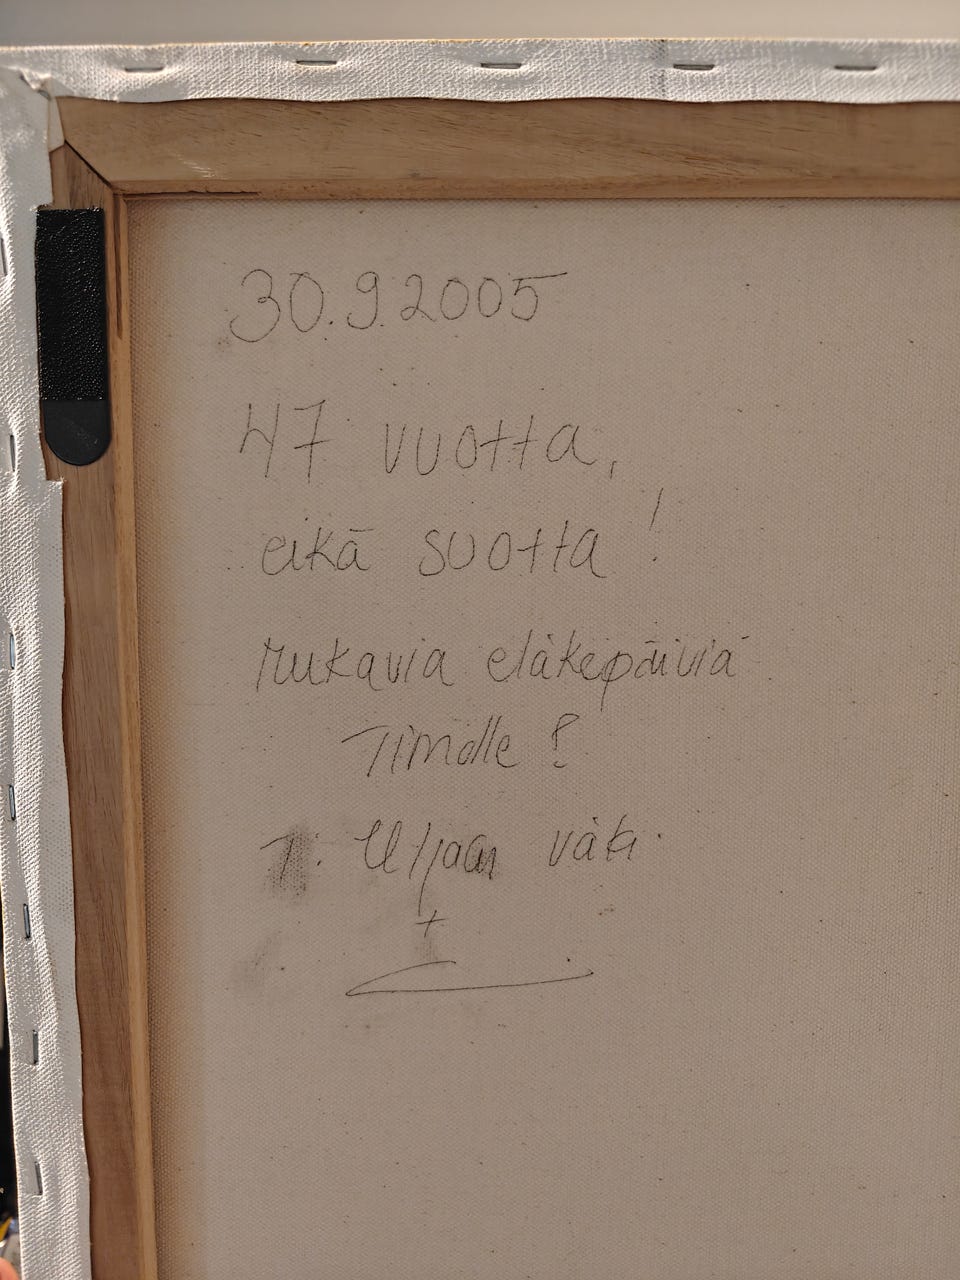 30.9.2005
47 vuotta,
eikä suotta!
Mukavia eläkepäiviä
Timolle!
T. Uljaan väki
+